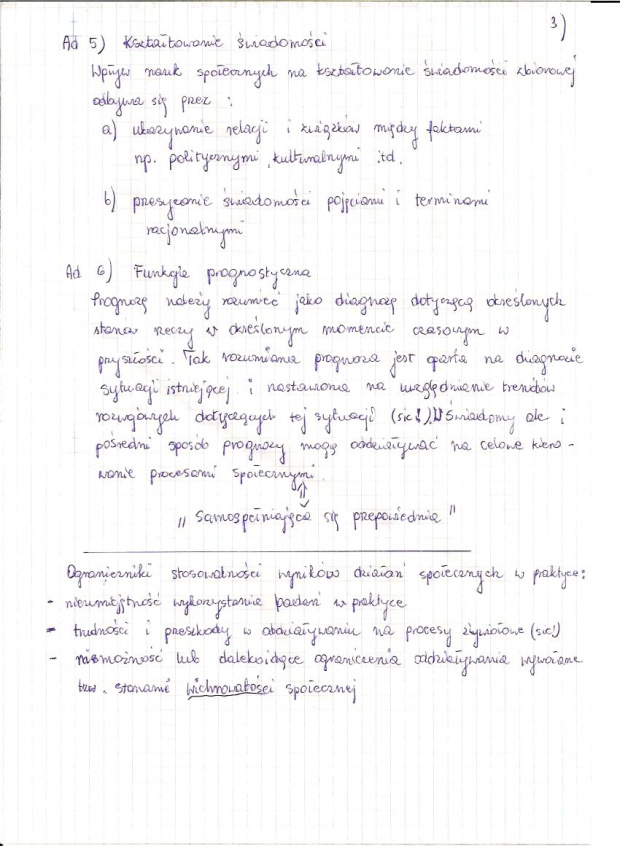 3)
Ad 5) Kształtowanie świadomości
Wpływ nauk społecznych na kształtowanie świadomości zbiorowej
odbywa się przez :
a) ukazywanie relacji i związków między faktami
np. politycznymi, kulturalnymi itd.
b) przesycanie świadomości pojęciami i terminami
racjonalnymi
Ad 6) Funkcja prognostyczna
Prognozę należy rozumieć jako diagnozę dotyczącą określonych
stanów rzeczy w określonym momencie czasowym w
przyszłości. Tak rozumiana prognoza jest oparta na diagnozie
sytuacji istniejącej i nastawiona na uwzględnianie trendów
rozwojowych dotyczących tej sytuacji (sic!). W świadomy ale i
pośredni sposób prognozy mogą oddziaływać na celowe kiero-
wanie procesami społecznymi.
"Samospełniająca się przepowiednia"
Ograniczniki stosowalności wyników działań społecznych w praktyce:
- nieumiejętność wykorzystania badań w praktyce
- trudności i przeszkody w oddziaływaniu na procesy żywiołowe (sic!)
- niemożność lub dalekoidące ograniczenia oddziaływania wywołane
tzw. stanami wichrowatości społecznej